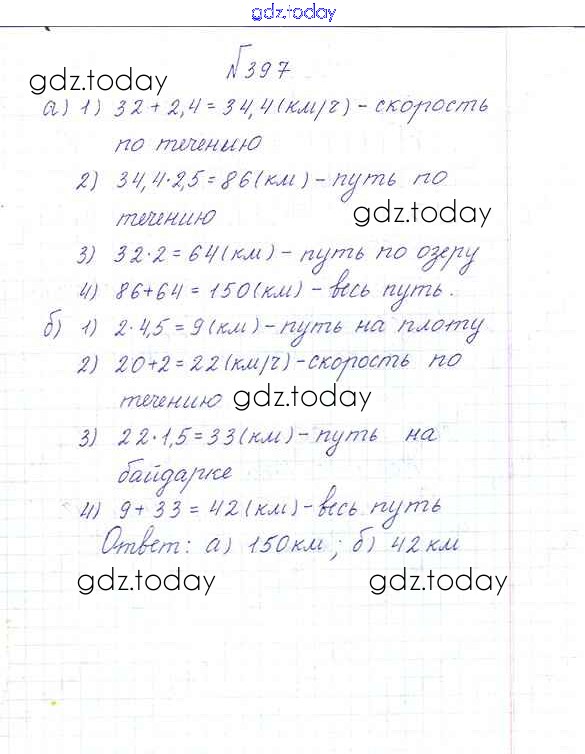 gdz.today
№397
gdz.today
а) 1) 32 + 2,4 = 34,4 (км/ч) - скорость
по течению
2) 34,4·2,5 = 86 (км) - путь по
течению
gdz.today
3) 32·2 = 64 (км) - путь по озеру
4) 86+64 = 150 (км) - весь путь.
б) 1) 2·4,5 = 9 (км) - путь на плоту
2) 20+2 = 22 (км/ч) - скорость по
течению
gdz.today
3) 22·1,5 = 33 (км) - путь на
байдарке
4) 9 + 33 = 42 (км) - весь путь
Ответ: а) 150 км; б) 42 км
gdz.today gdz.today